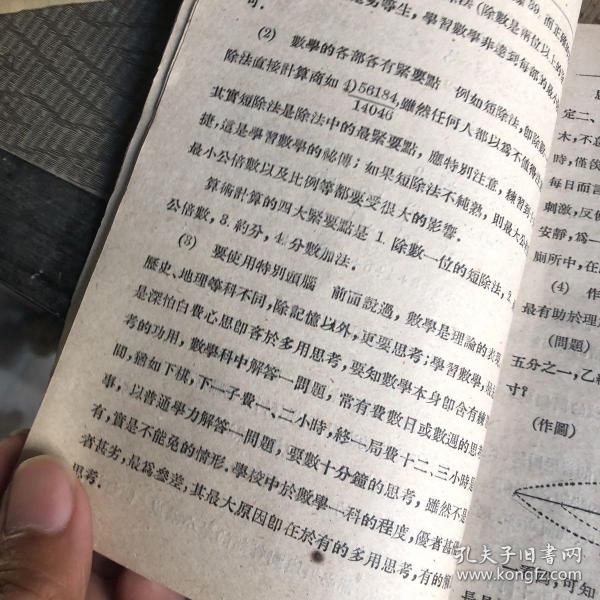 39, 而正
(除數是兩位以上
可.
劣等生, 學習數學非達到每部的最
(2) 數學的各部各有緊要點 例如短除法, 卽除數
除法直接計算商如 4)56184, 雖然任何人都以爲不值得
14046
其實短除法是除法中的最緊要點, 應特別注意, 練習到
捷, 這是學習數學的祕傳; 如果短除法不純熟, 則最大公
最小公倍數以及比例等都要受很大的影響.
算術計算的四大緊要點是 1. 除數一位的短除法, 2.
公倍數, 3. 約分, 4. 分數加法.
(3) 要使用特別頭腦 前面說過, 數學是理論的
歷史、地理等科不同, 除記憶以外, 更要思考; 學習數學,
是深怕白費心思卽吝於多用思考, 要知數學本身卽含有
考的功用, 數學科中解答一問題, 常有費數日或數週的思
間, 猶如下棋, 下一子費一、二小時, 終一局費十二、三小時
事, 以普通學力解答一問題, 要數十分鐘的思考, 雖然不是
有, 實是不能免的情形. 學校中於數學一科的程度, 優者甚
者甚劣, 最爲參差, 其最大原因卽在於有的多用思考, 有的
思考.
定二、
木, 不
時, 僅
每日而
刺激, 反
安靜, 爲一
廁所中, 在
(4) 作
最有助於理
(問題)
五分之一, 乙
寸?
(作圖)
可知
孔夫子旧书网
www.kongfz.com